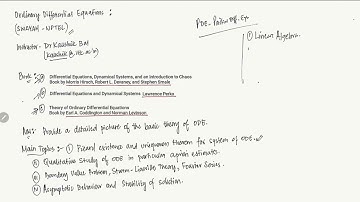 Ordinary Differential Equations :
(SWAYAM - NPTEL)
Instructor - Dr Kaushik Bal
Book :
Differential Equations, Dynamical Systems, and an Introduction to Chaos
Book by Morris Hirsch, Robert L. Devaney, and Stephen Smale
Differential Equations and Dynamical Systems Lawrence Perko
Theory of Ordinary Differential Equations
Book by Earl A. Coddington and Norman Levinson
Aim: Provide a detailed picture of the basic theory of ODE.
Main Topics : ① Picard existence and uniqueness theorem for system of ODE.
Qualitative Study of ODE in particular apriori estimates.
Boundary Value Problem, Sturm-Liouville Theory, Fourier Series
Asymptotic Behaviour and Stability of solution.
① Linear Algebra.